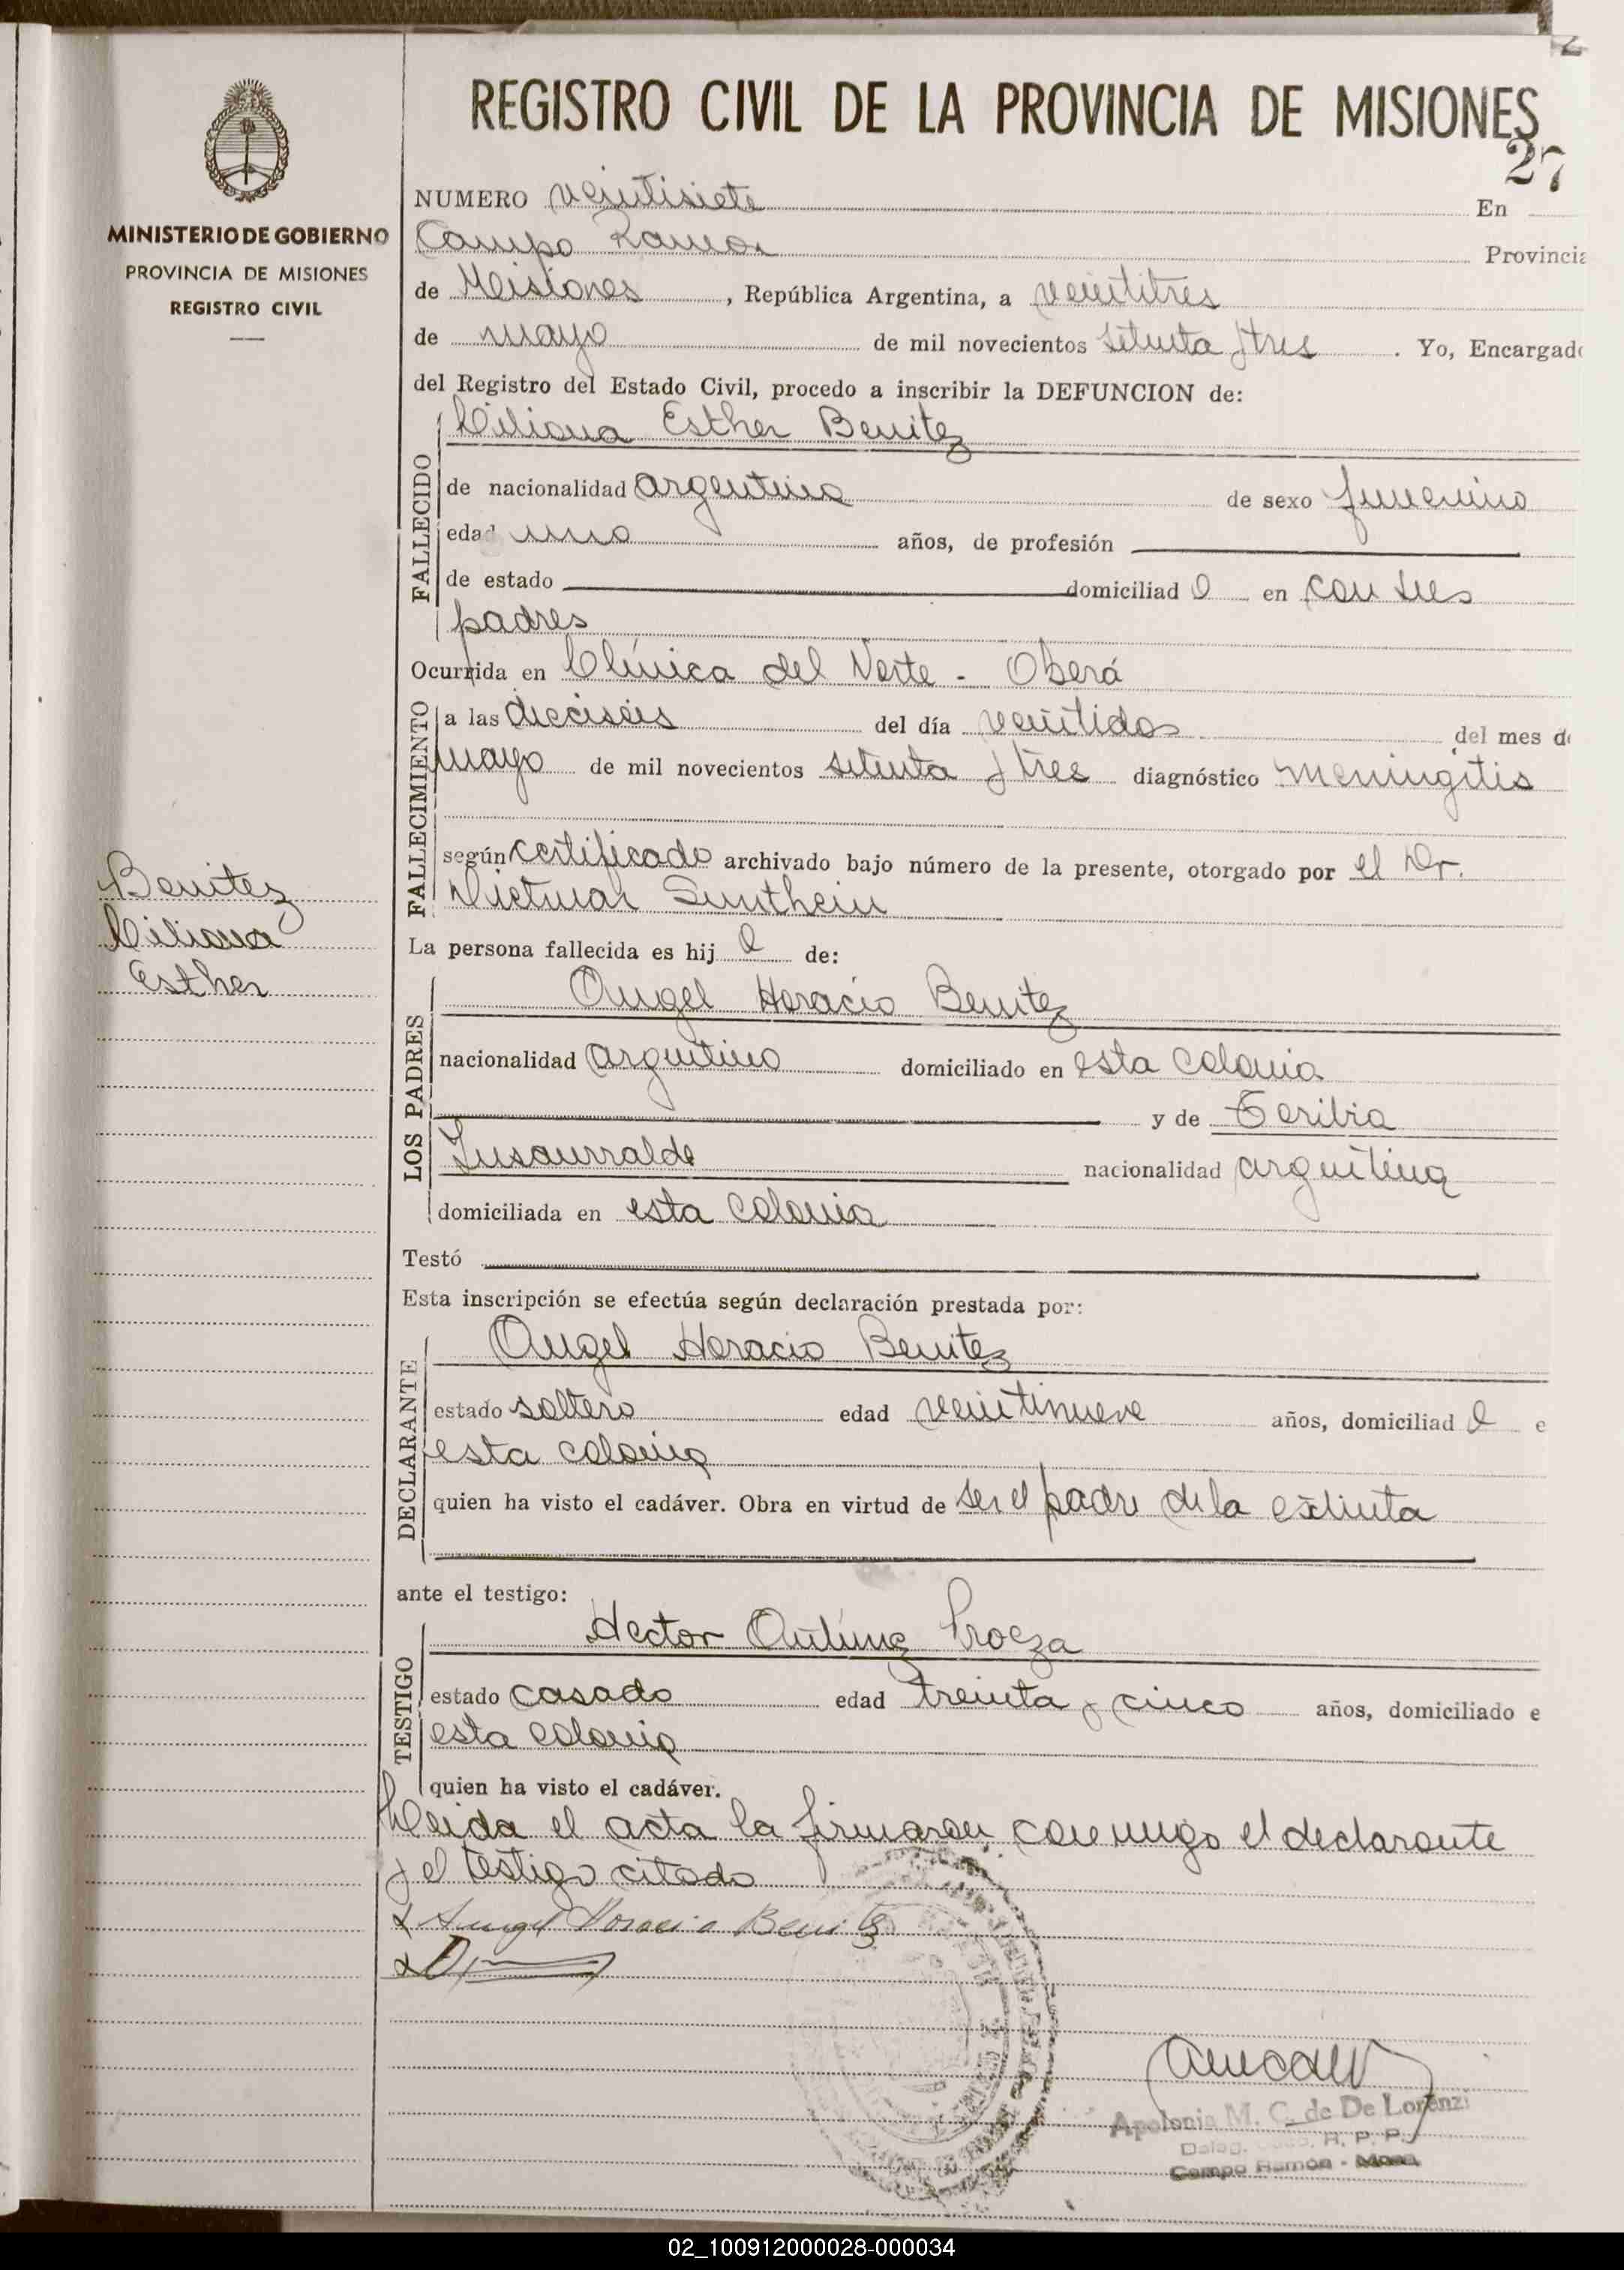 REGISTRO CIVIL DE LA PROVINCIA DE MISIONES
27
MINISTERIO DE GOBIERNO
PROVINCIA DE MISIONES
REGISTRO CIVIL
NUMERO veintisiete En
Campo Ramon Provincia
de Misiones, República Argentina, a veintitres
de mayo de mil novecientos setenta y tres. Yo, Encargado
del Registro del Estado Civil, procedo a inscribir la DEFUNCION de:
Liliana Esther Benitez
FALLECIDO
de nacionalidad argentina de sexo femenino
edad uno años, de profesión
de estado domiciliada en con sus
padres
Ocurrida en Clínica del Norte - Oberá
FALLECIMIENTO
a las dieciséis del día veintidos del mes de
mayo de mil novecientos setenta y tres diagnóstico meningitis
según certificado archivado bajo número de la presente, otorgado por el Dr.
Dietmar
Benitez
Liliana
Esther
La persona fallecida es hija de:
LOS PADRES
Angel Horacio Benitez
nacionalidad argentino domiciliado en esta colonia
y de
nacionalidad argentina
domiciliada en esta colonia
Testó
Esta inscripción se efectúa según declaración prestada por:
DECLARANTE
Angel Horacio Benitez
estado soltero edad veintinueve años, domiciliado e
esta colonia
quien ha visto el cadáver. Obra en virtud de ser el padre de la extinta
ante el testigo:
TESTIGO
Hector
estado casado edad treinta y cinco años, domiciliado e
esta colonia
quien ha visto el cadáver.
Leida el acta la firmaron conmigo el declarante
y el testigo citado
x Angel Horacio Benitez
Apolonia M. C. de De Lorenzi
R. P. P.
Campo Ramón - Mnes.
02_100912000028-000034